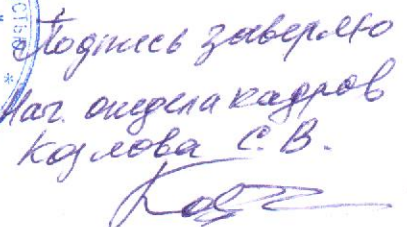 Подпись заверяю
Нач. отдела кадров
Козлова С. В.